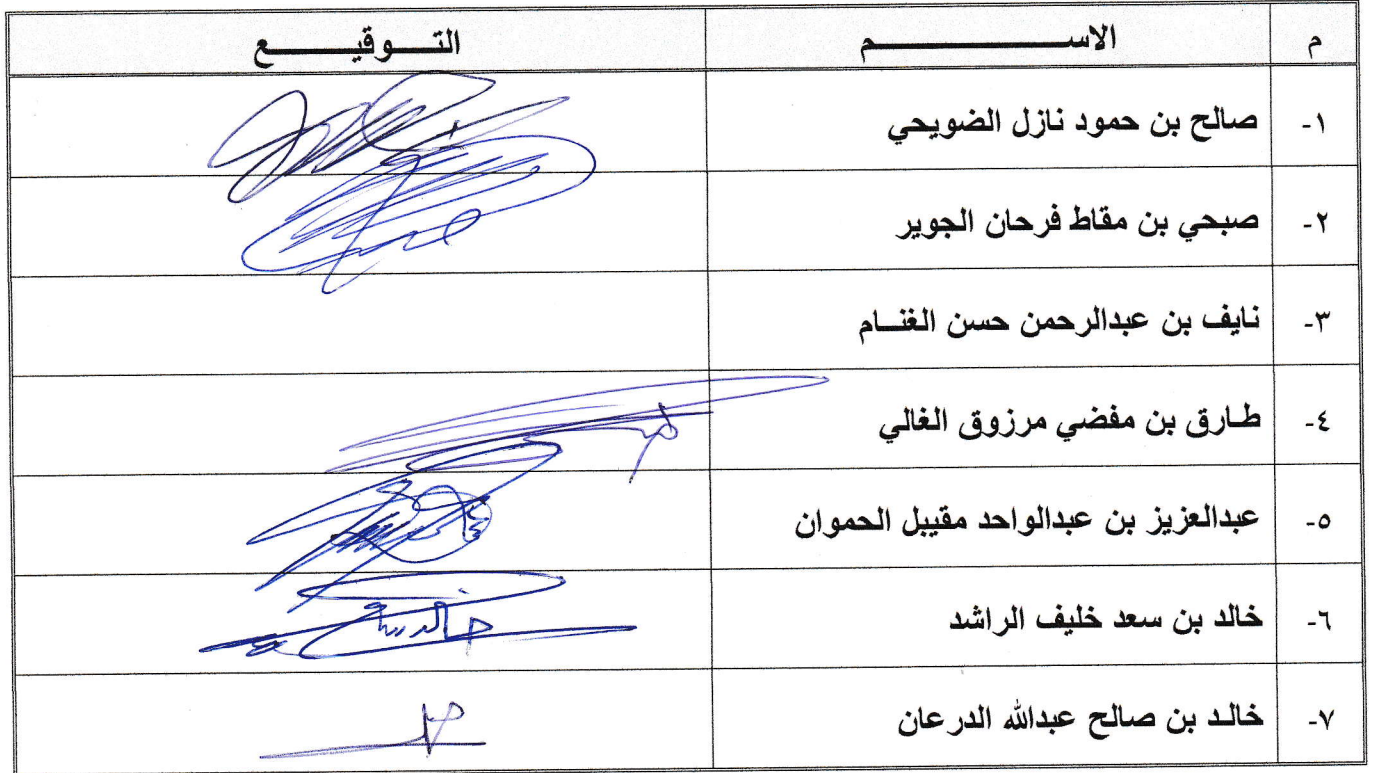 م الاســـــــــــم التـــوقيـــــــع
١- صالح بن حمود نازل الضويحي
٢- صبحي بن مقاط فرحان الجوير
٣- نايف بن عبدالرحمن حسن الغنــام
٤- طـارق بن مفضي مرزوق الغالي
٥- عبدالعزيز بن عبدالواحد مقيبل الحموان
٦- خالد بن سعد خليف الراشد
٧- خالـد بن صالح عبدالله الدرعان